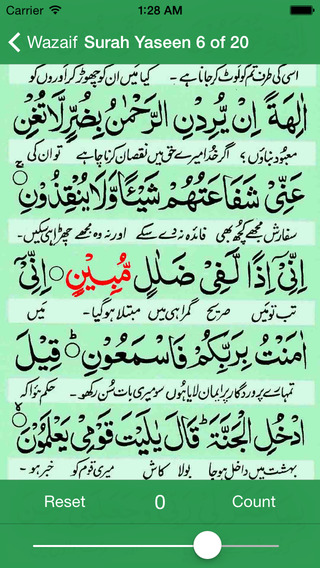 Carrier 1:28 AM
Wazaif Surah Yaseen 6 of 20
اسی کی طرف تم کو لوٹ کر جانا ہے - کیا میں ان کو چھوڑ کر اوروں کو
اٰلِهَةً اِنْ يُّرِدْنِ الرَّحْمٰنُ بِضُرٍّ لَّا تُغْنِ
معبود بناؤں؟ اگر خدا میرے حق میں نقصان کرنا چاہے تو ان کی
عَنِّيْ شَفَاعَتُهُمْ شَيْـًٔا وَّلَا يُنْقِذُوْنِۚ
سفارش مجھے کچھ بھی فائدہ نہ دے سکے اور نہ وہ مجھے چھڑا ہی سکیں
اِنِّيْٓ اِذًا لَّفِيْ ضَلٰلٍ مُّبِيْنٍ۝ اِنِّيْٓ
تب تو میں صریح گمراہی میں مبتلا ہو گیا - میں
اٰمَنْتُ بِرَبِّكُمْ فَاسْمَعُوْنِ۝ؕ قِيْلَ
تمہارے پروردگار پر ایمان لایا ہوں سو میری بات سُن رکھو - حکم ہوا کہ
ادْخُلِ الْجَنَّةَ ؕ قَالَ يٰلَيْتَ قَوْمِيْ يَعْلَمُوْنَ۝ۙ
بہشت میں داخل ہو جا بولا کاش میری قوم کو خبر ہو -
Reset 0 Count